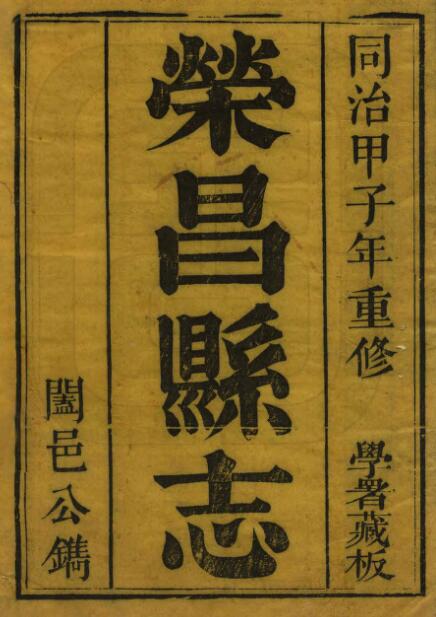 同治甲子年重修 學署藏板
榮昌縣志
闔邑公鐫